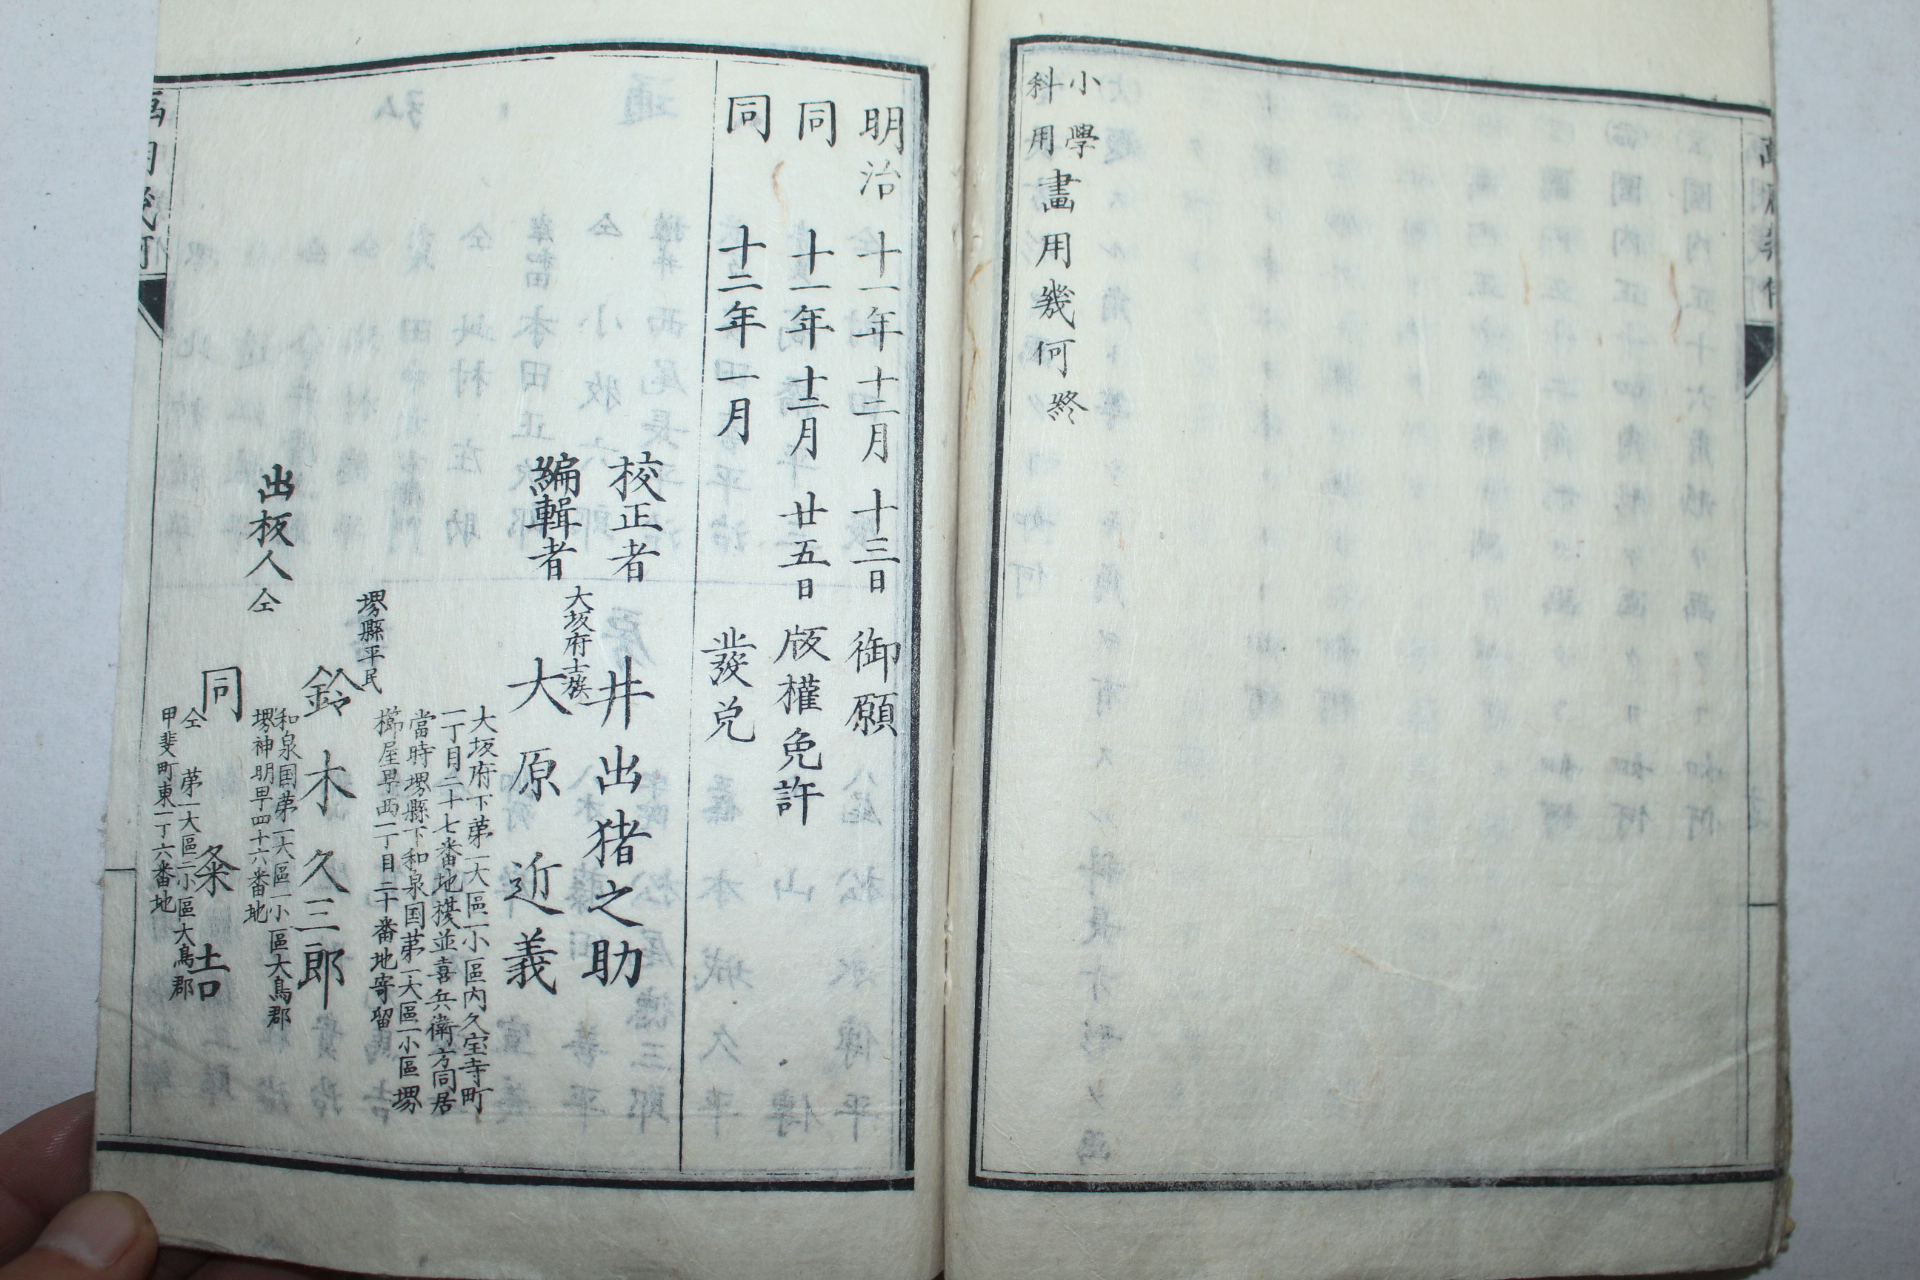 小學
科用
畫用幾何終
明治十一年十二月十三日御願
同十一年十二月廿五日版權免許
同十二年一月發兌
校正者井出猪之助
大坂府士族
編輯者大原近義
大坂府下苐一大區一小區内久宝寺町
一丁目二十七番地横並喜兵衛方同居
當時堺縣下和泉国苐一大區一小區堺
櫛屋早西一丁目二十番地寄留
堺縣平民
鈴木久三郎
和泉国苐一大區一小區大鳥郡
堺神明早四十六番地
出板人仝
同粂吉
仝苐一大區二小區大鳥郡
甲斐町東一丁六番地